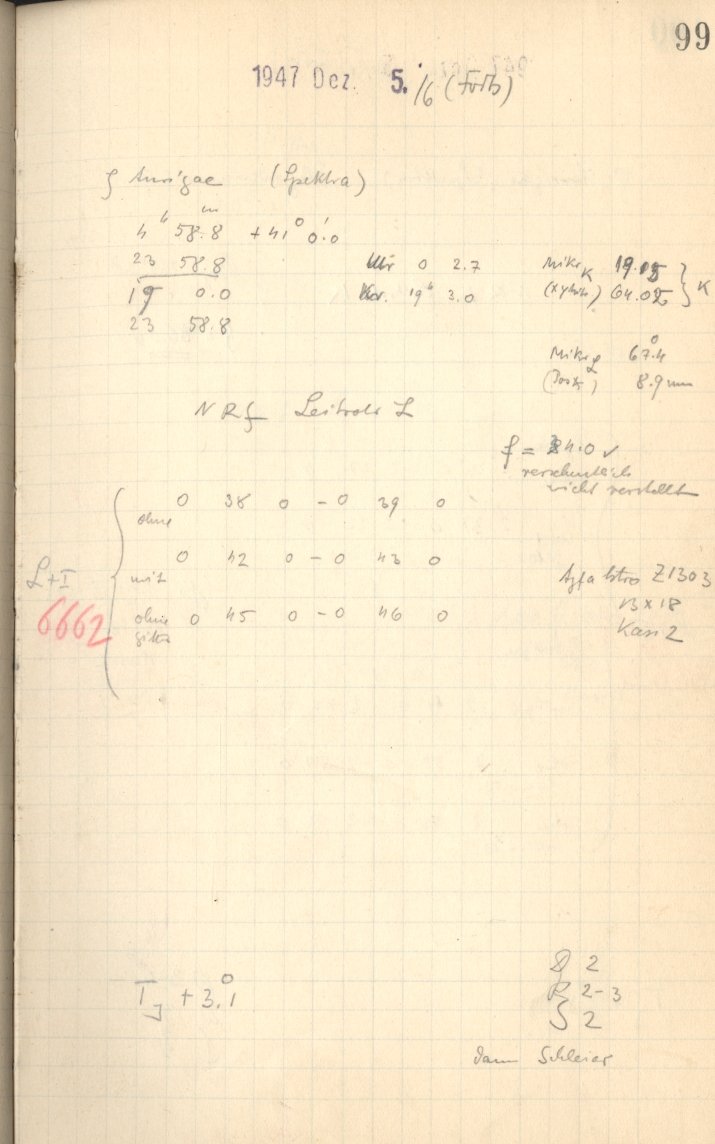 99
1947 Dez. 5./6 (Forts)
ζ Aurigae (Spektra)
4 h 58.8 m + 41° 0.'0
23 58.8
19 0.0
23 58.8
Uhr 0 2.7
Kor. 19 h 3.0
Mikr K 19.15
64.02 } K
Mikr L 67.4°
8.9 mm
NRf Leitrohr L
f = 24.0 ✓
versehentlich
nicht verstellt
L+I
6662
ohne 0 38 0 - 0 39 0
mit 0 42 0 - 0 43 0
ohne gitter 0 45 0 - 0 46 0
Agfa Astro Z1303
13 x 18
Kass 2
T J + 3.°1
D 2
R 2-3
S 2
dann Schleier